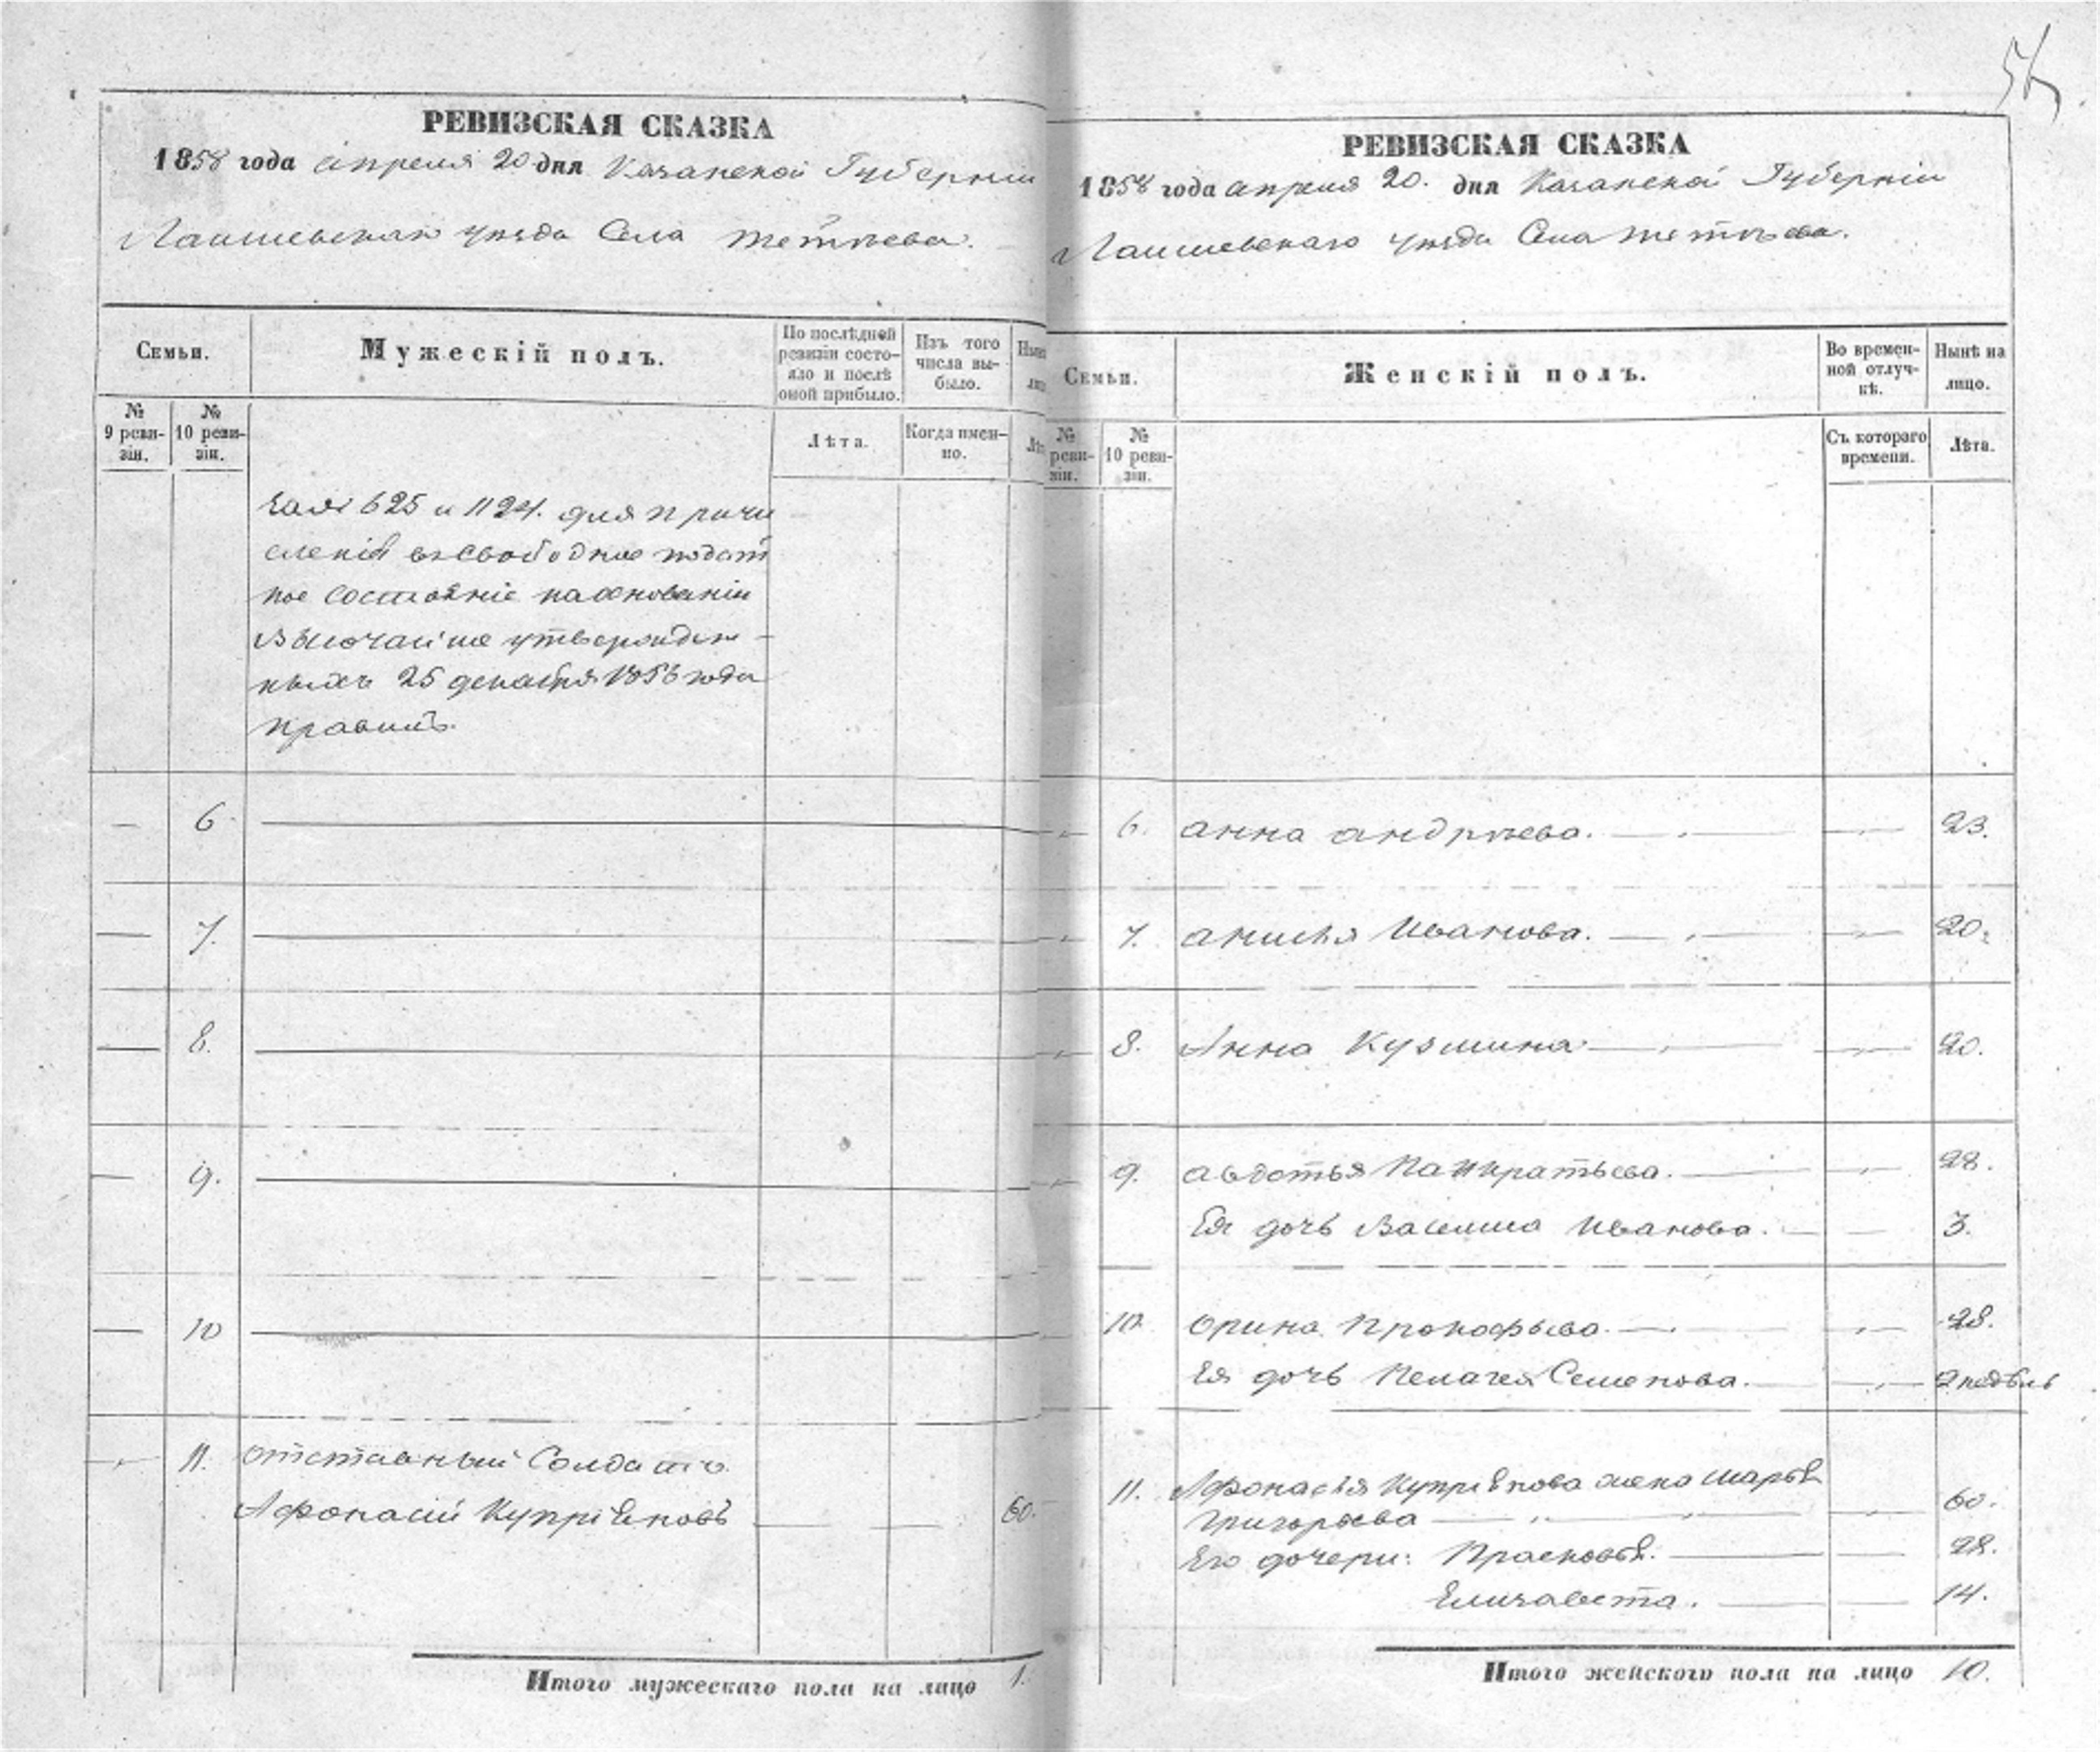 РЕВИЗСКАЯ СКАЗКА
1858 года апреля 20 дня Казанской Губернiи
Лаишевскаго уѣзда Села Тетѣева.
Семьи.
Мужескiй полъ.
По послѣдней ревизiи состояло и послѣ оной прибыло.
Изъ того числа выбыло.
№ 9 ревизiи.
№ 10 ревизiи.
Лѣта.
Когда именно.
625 и 1124. для причи
сленiя въ свободное подат
ное состоянiе на основанiи
Высочайше утвержден-
ныхъ 25 декабря 1856 года
правилъ.
— 6. —
— 7. —
— 8. —
— 9. —
— 10 —
11. Отставный Солдатъ
Афонасiй Купрiяновъ — — 60.
Итого мужескаго пола на лицо 1.
РЕВИЗСКАЯ СКАЗКА
1858 года апреля 20. дня Казанской Губернiи
Лаишевскаго уѣзда Села Тетѣева.
Семьи.
Женскiй полъ.
Во временной отлучкѣ.
Нынѣ на лицо.
№ ревизiи.
№ 10 ревизiи.
Съ котораго времени.
Лѣта.
6. Анна Андрѣева. — 23.
7. Анисья Иванова. — 20.
8. Анна Кузмина — 20.
9. Авдотья Панкратьева. — 28.
Ея дочь Василиса Иванова. — 3.
10. Орина Прокофьева. — 28.
Ея дочь Пелагея Семенова. — 2 недѣль
11. Афонасья Купрiянова жена Марья
Григорьева — 60.
Его дочери: Прасковья. — 28.
Елизавета. — 14.
Итого женскаго пола на лицо 10.